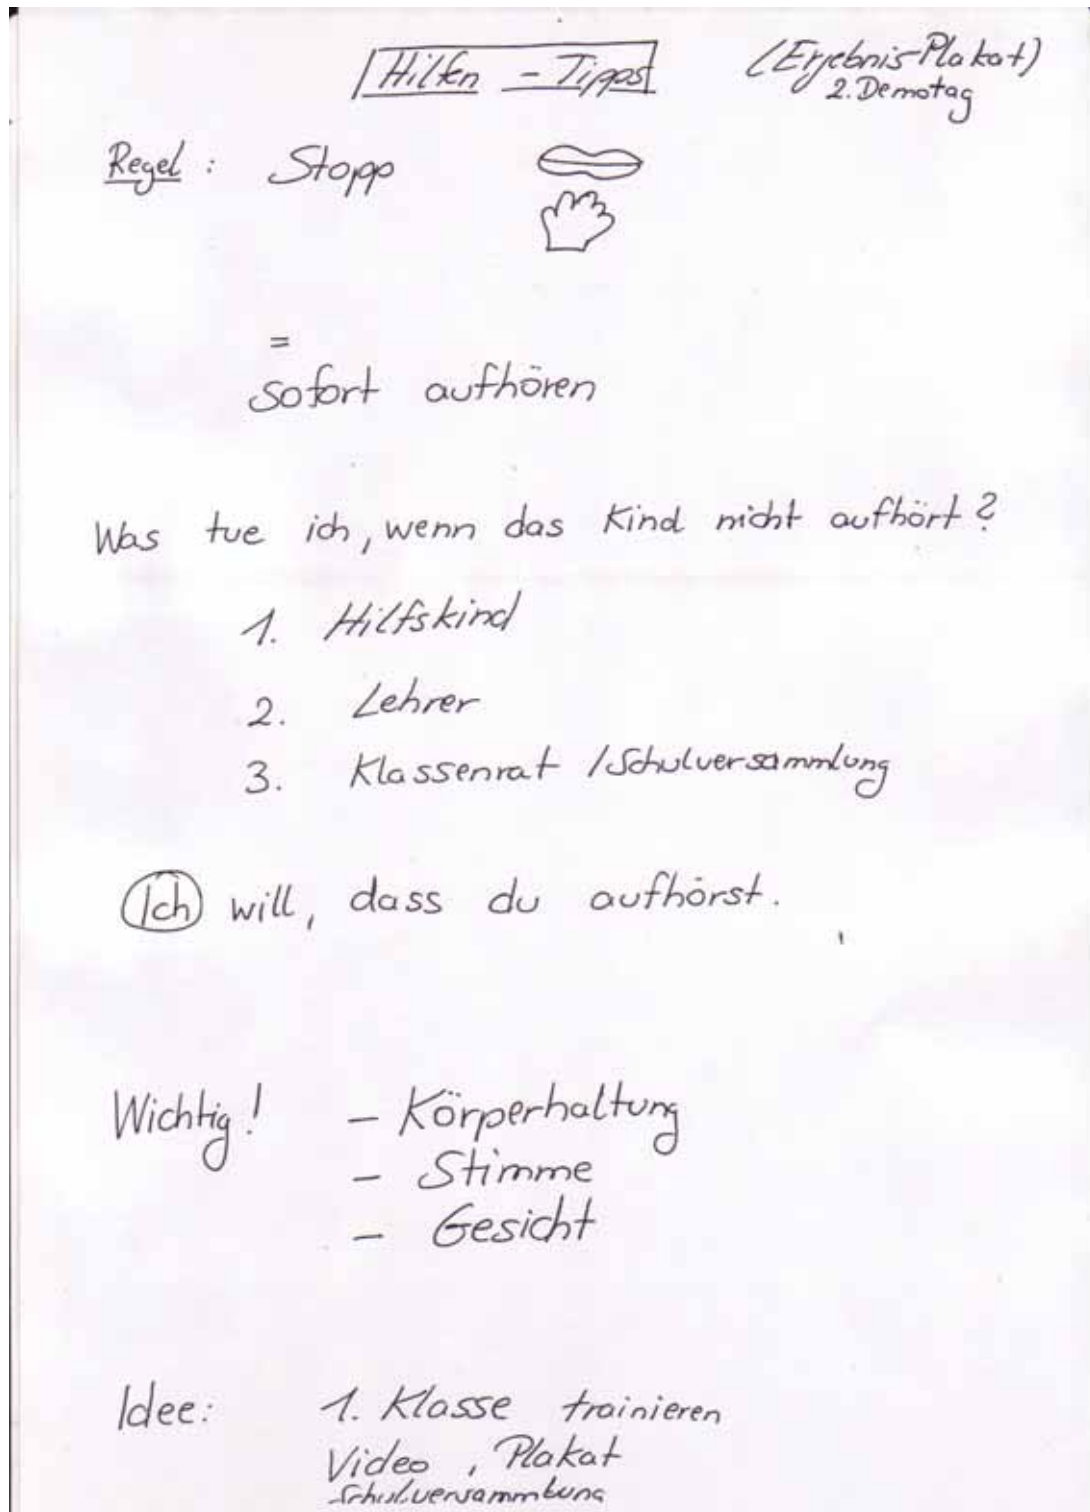 Hilfen - Tipps (Ergebnis-Plakat)
2. Demotag
Regel: Stopp
=
sofort aufhören
Was tue ich, wenn das Kind nicht aufhört?
1. Hilfskind
2. Lehrer
3. Klassenrat / Schulversammlung
Ich will, dass du aufhörst.
Wichtig! - Körperhaltung
- Stimme
- Gesicht
Idee: 1. Klasse trainieren
Video, Plakat
Schulversammlung